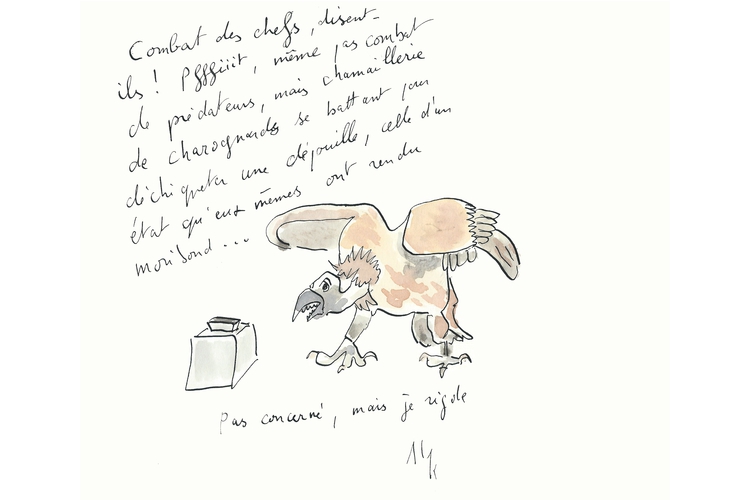 Combat des chefs, disent-
ils ! Pffffiiit, même pas combat
de prédateurs, mais chamaillerie
de charognards se battant pour
déchiqueter une dépouille, celle d'un
état qu'eux mêmes ont rendu
moribond...
Pas concerné, mais je rigole